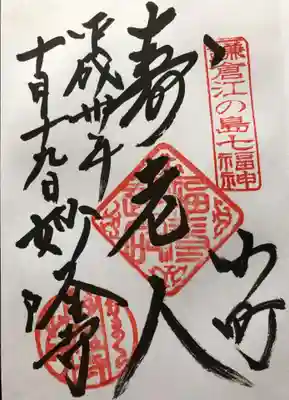 鎌倉江の島七福神
小町
寿老人
平成卅年
十月十九日
妙隆寺